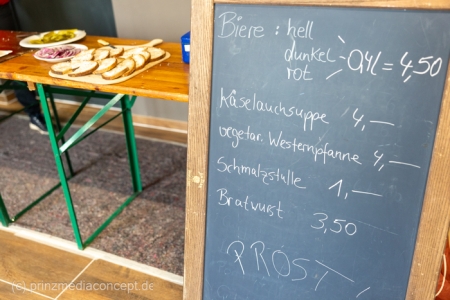 Biere : hell
dunkel 0,4l = 4,50
rot
Käselauchsuppe 4,—
vegetar. Westernpfanne 4,—
Schmalzstulle 1,—
Bratwurst 3,50
PROST
(c) prinzmediaconcept.de